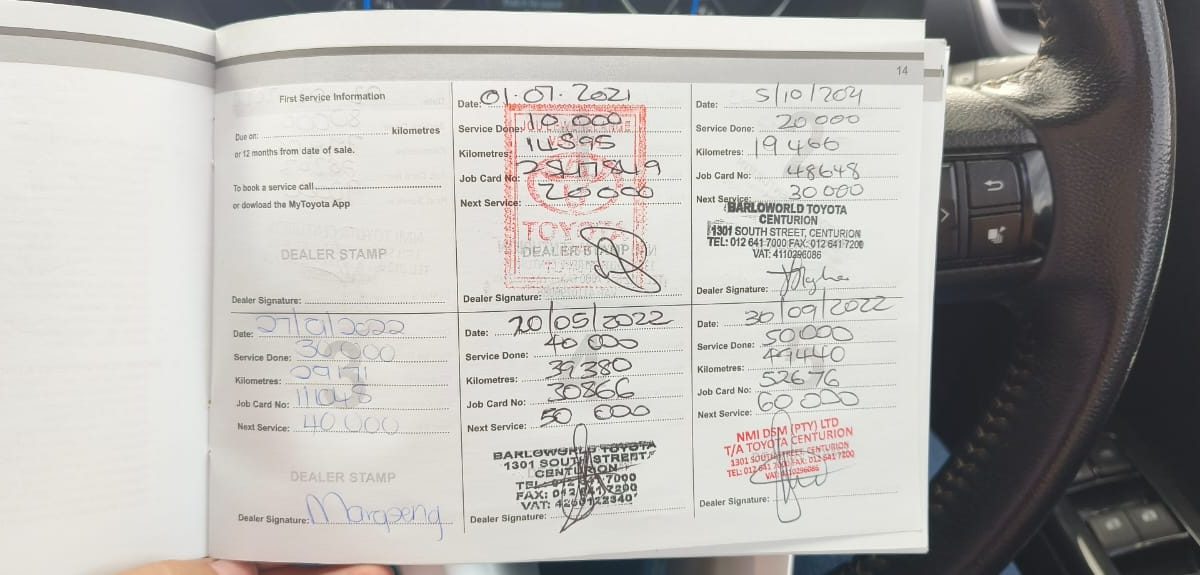 14
First Service Information
Due on: kilometres
or 12 months from date of sale.
To book a service call
or dowload the MyToyota App
DEALER STAMP
Dealer Signature:
Date: 01.07.2021
Service Done: 10.000
Kilometres: 14895
Job Card No:
Next Service: 20000
TOYOTA
DEALER STAMP
Dealer Signature:
Date: 5/10/2021
Service Done: 20 000
Kilometres: 19 466
Job Card No: 48648
Next Service: 30 000
BARLOWORLD TOYOTA
CENTURION
1301 SOUTH STREET, CENTURION
TEL: 012 641 7000 FAX: 012 641 7200
VAT: 4110296086
Dealer Signature:
Date: 27/01/2022
Service Done: 30 000
Kilometres: 29171
Job Card No: 111048
Next Service: 40 000
DEALER STAMP
Dealer Signature: Marapeng
Date: 20/05/2022
Service Done: 40 000
Kilometres: 39380
Job Card No: 30866
Next Service: 50 000
BARLOWORLD TOYOTA
1301 SOUTH STREET
CENTURION
TEL: 012 641 7000
FAX: 012 641 7200
VAT:
Dealer Signature:
Date: 30/09/2022
Service Done: 50000
Kilometres: 49440
Job Card No: 52676
Next Service: 60 000
NMI DSM (PTY) LTD
T/A TOYOTA CENTURION
1301 SOUTH STREET, CENTURION
TEL: 012 641 7000 FAX: 012 641 7200
VAT: 4110296086
Dealer Signature: